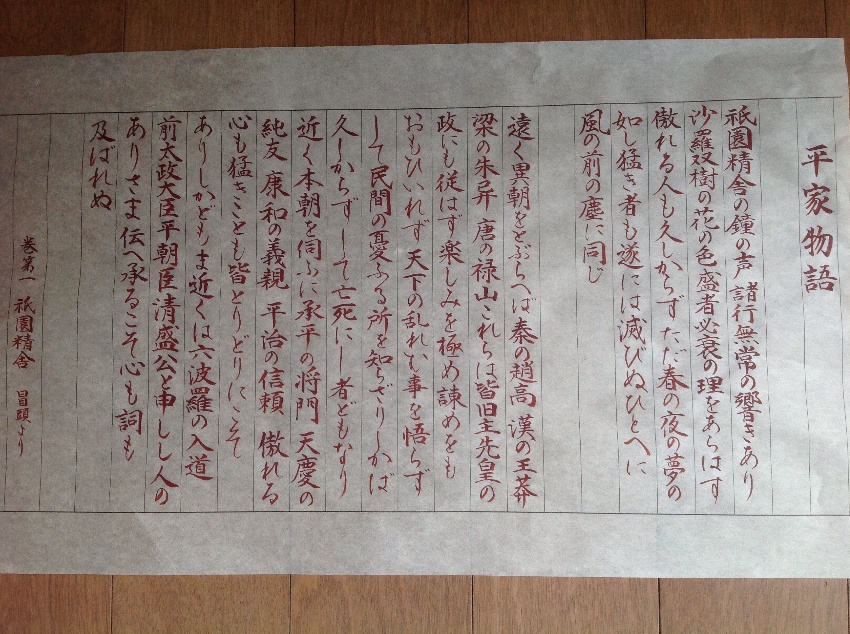 平家物語
祇園精舎の鐘の声 諸行無常の響きあり
沙羅双樹の花の色 盛者必衰の理をあらはす
傲れる人も久しからず ただ春の夜の夢の
如し 猛き者も遂には滅びぬ ひとへに
風の前の塵に同じ
遠く異朝をとぶらへば 秦の趙高 漢の王莽
梁の朱异 唐の禄山 これらは皆 旧主先皇の
政にも従はず 楽しみを極め 諫めをも
おもひいれず 天下の乱れむ事を悟らず
して 民間の憂ふる所を知らざりしかば
久しからずして亡死にし者どもなり
近く本朝を伺ふに 承平の将門 天慶の
純友 康和の義親 平治の信頼 傲れる
心も猛きことも皆とりどりにこそ
ありしかども ま近くは六波羅の入道
前太政大臣平朝臣清盛公と申しし人の
ありさま 伝へ承るこそ 心も詞も
及ばれぬ
巻第一 祇園精舎 冒頭より